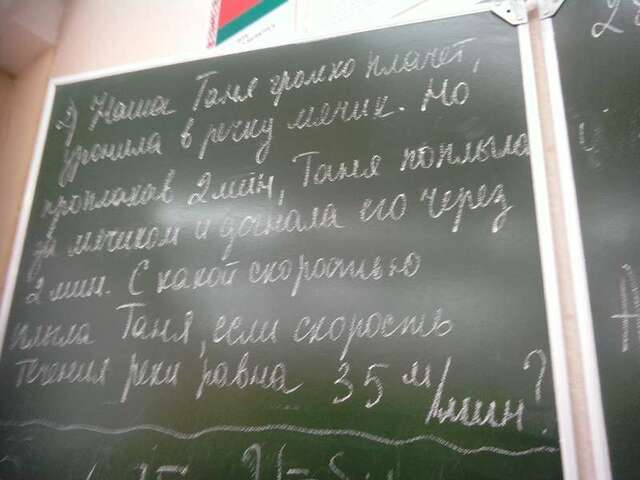 2) Наша Таня громко плачет,
уронила в речку мячик. Но
проплакав 2 мин, Таня поплыла
за мячиком и догнала его через
2 мин. С какой скоростью
плыла Таня, если скорость
течения реки равна 35 м/мин?